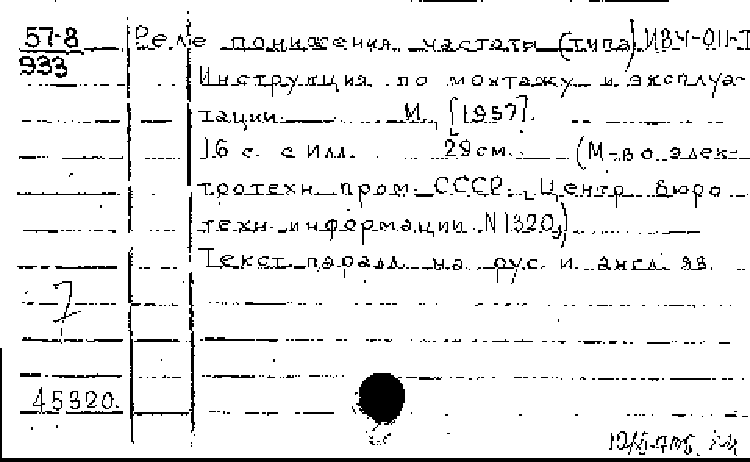 57-8
933
Реле понижения частоты (типа) ИВЧ-011-Т
Инструкция по монтажу и эксплуа-
тации. М., [1957].
16 с. с илл. 29 см. (М-во элек-
тротехн. пром. СССР. Центр. бюро
техн. информации. N 1320.)
Текст паралл. на рус. и англ. яз.
45320.